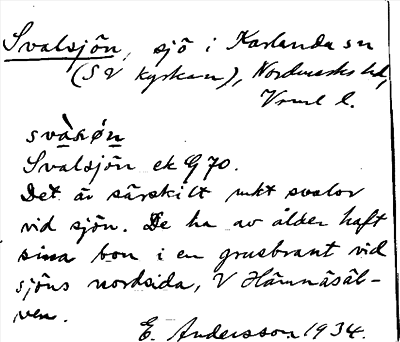 Svalsjön, sjö i Karlanda sn
(SV kyrkan), Nordmarks hd,
Vrml l.
svàʂøn
Svalsjön ek G 70.
Det är särskilt mkt svalor
vid sjön. De ha av ålder haft
sina bon i en grusbrant vid
sjöns nordsida, V Hämnäsäl-
ven.
E. Andersson 1934.